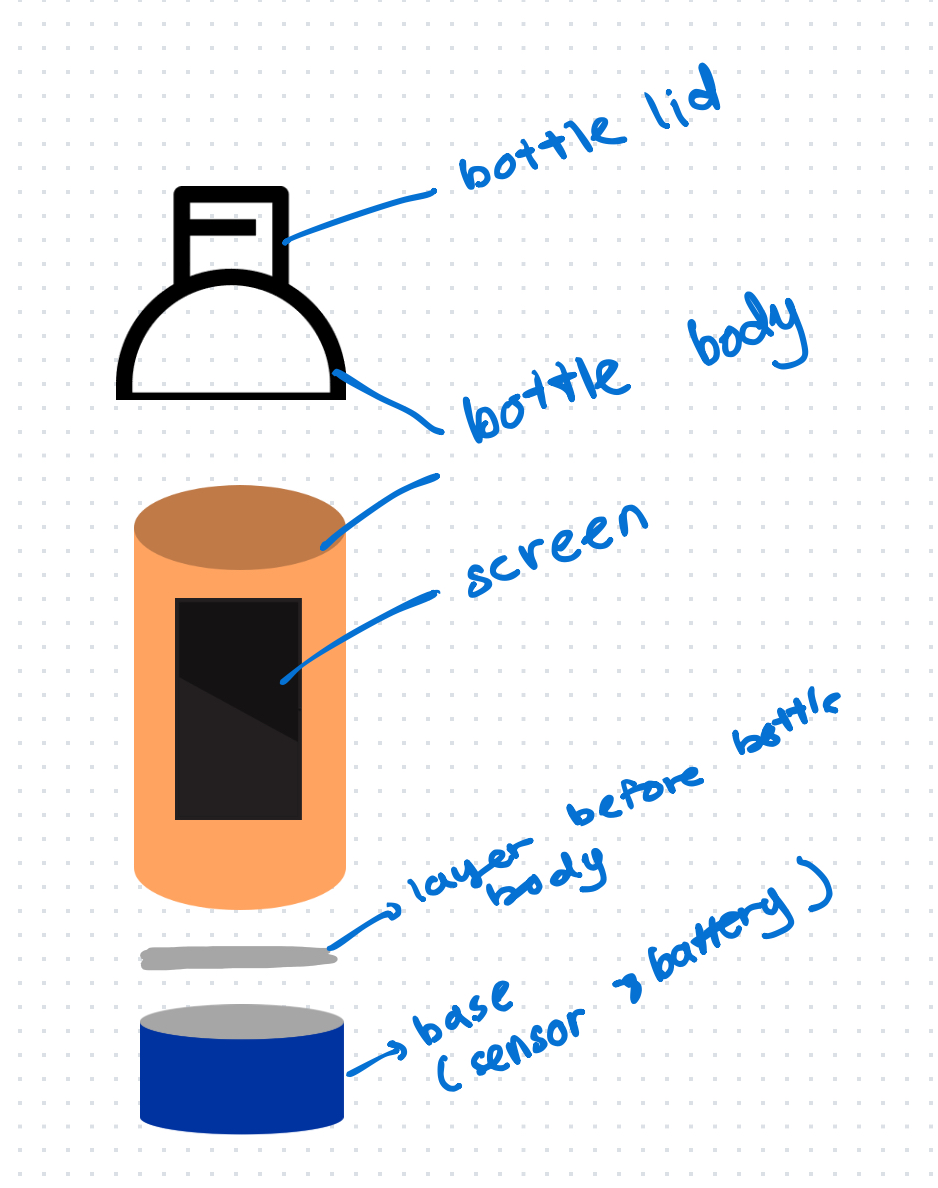 bottle lid
bottle body
screen
layer before bottle
body
base
(sensor, battery)